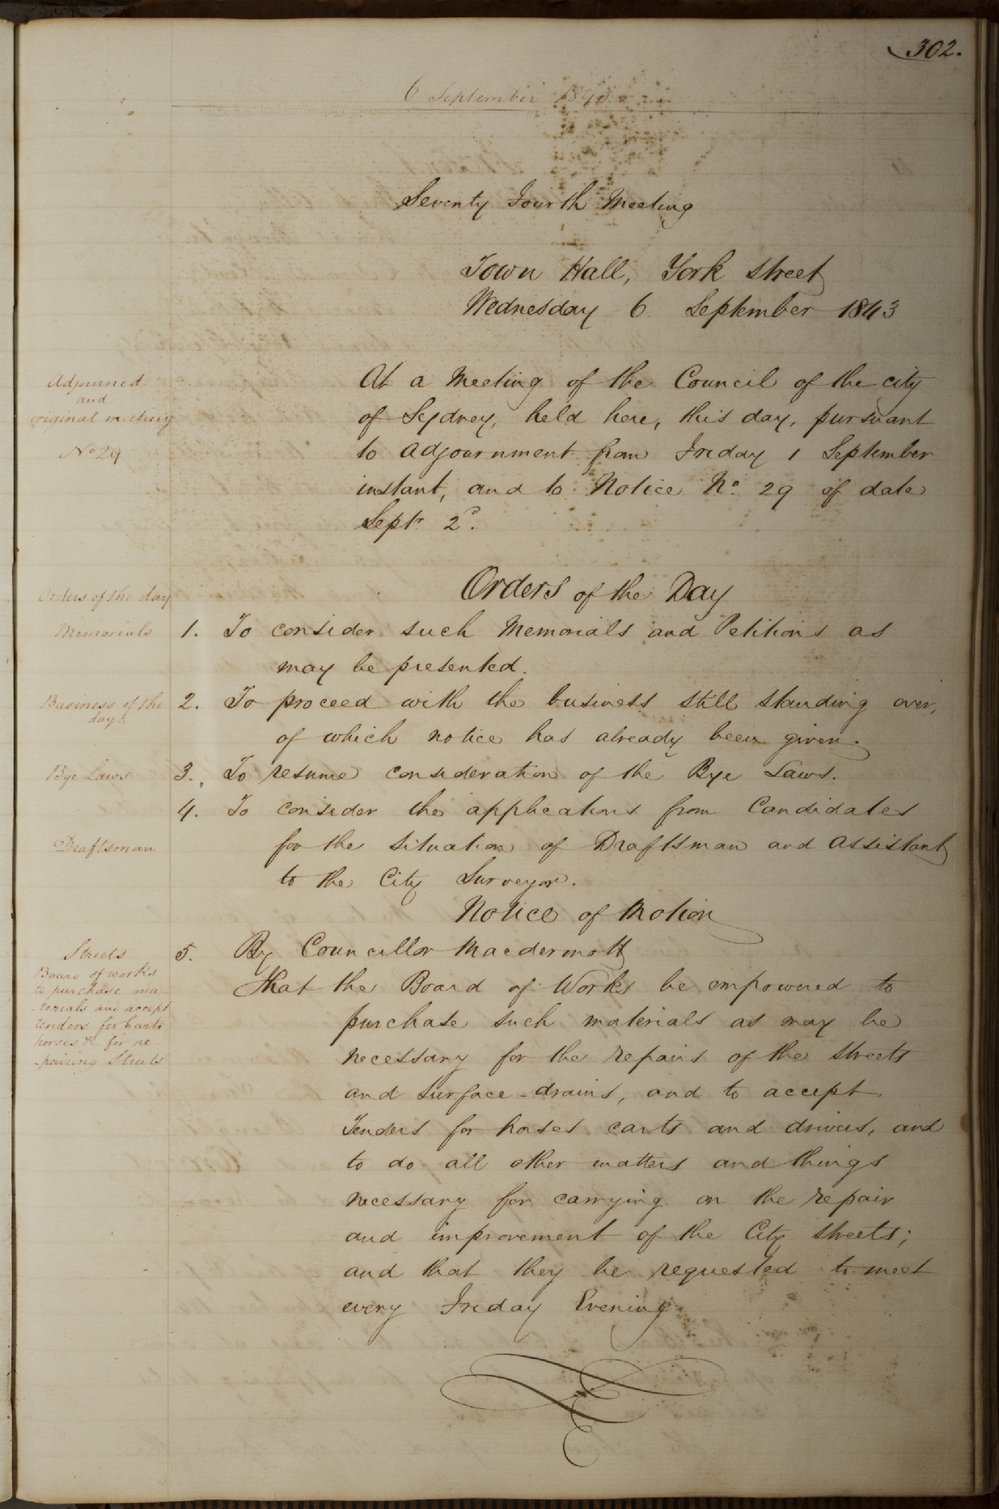 302.
6 September 1843
Seventy Fourth Meeting
Town Hall, York Street
Wednesday 6 September 1843
Adjourned
and
original meeting
No 29
At a Meeting of the Council of the city
of Sydney, held here, this day, pursuant
to adjournment from Friday 1 September
instant, and to Notice No. 29 of date
Septr 2d.
Orders of the day
Orders of the Day
Memorials
1. To consider such Memorials and Petitions as
may be presented.
Business of the
day.
2. To proceed with the business still standing over,
of which notice has already been given.
Bye Laws
3. To resume consideration of the Bye Laws.
4. To consider the applications from Candidates
Draftsman
for the situation of Draftsman and Assistant
to the City Surveyor.
Notice of Motion
Streets
Board of works
to purchase ma-
-terials and accept
tenders for carts
horses &c for re
-pairing Streets
5. By Councillor Macdermott
That the Board of Works be empowered to
purchase such materials as may be
necessary for the repairs of the streets
and surface-drains, and to accept
Tenders for horses carts and drivers, and
to do all other matters and things
necessary for carrying on the repair
and improvement of the City streets;
and that they be requested to meet
every Friday Evening